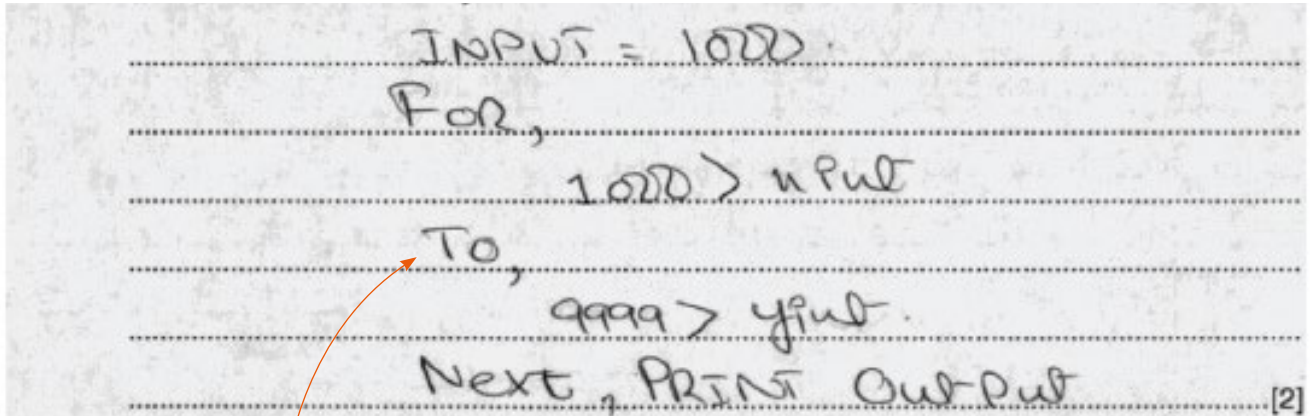 INPUT = 1000.
For,
1000 > nPut
To,
9999 >
Next, PRINT OutPut
[2]